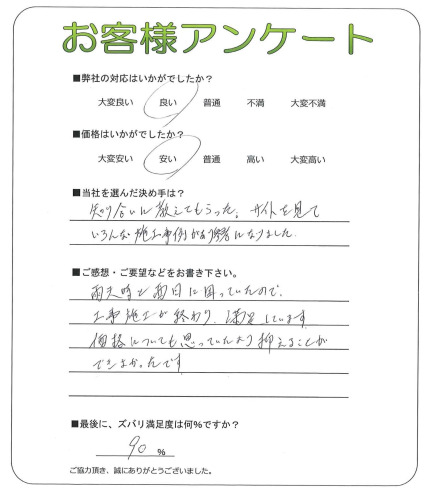 お客様アンケート
■弊社の対応はいかがでしたか？
大変良い 良い 普通 不満 大変不満
■価格はいかがでしたか？
大変安い 安い 普通 高い 大変高い
■当社を選んだ決め手は？
知り合いに教えてもらった。サイトを見て
いろんな施工事例があり参考になりました
■ご感想・ご要望などをお書き下さい。
雨天時と西日に困っていたので、
工事施工が終わり、満足しています
価格についても思っていたより抑えることが
できよかったです
■最後に、ズバリ満足度は何％ですか？
90 ％
ご協力頂き、誠にありがとうございました。